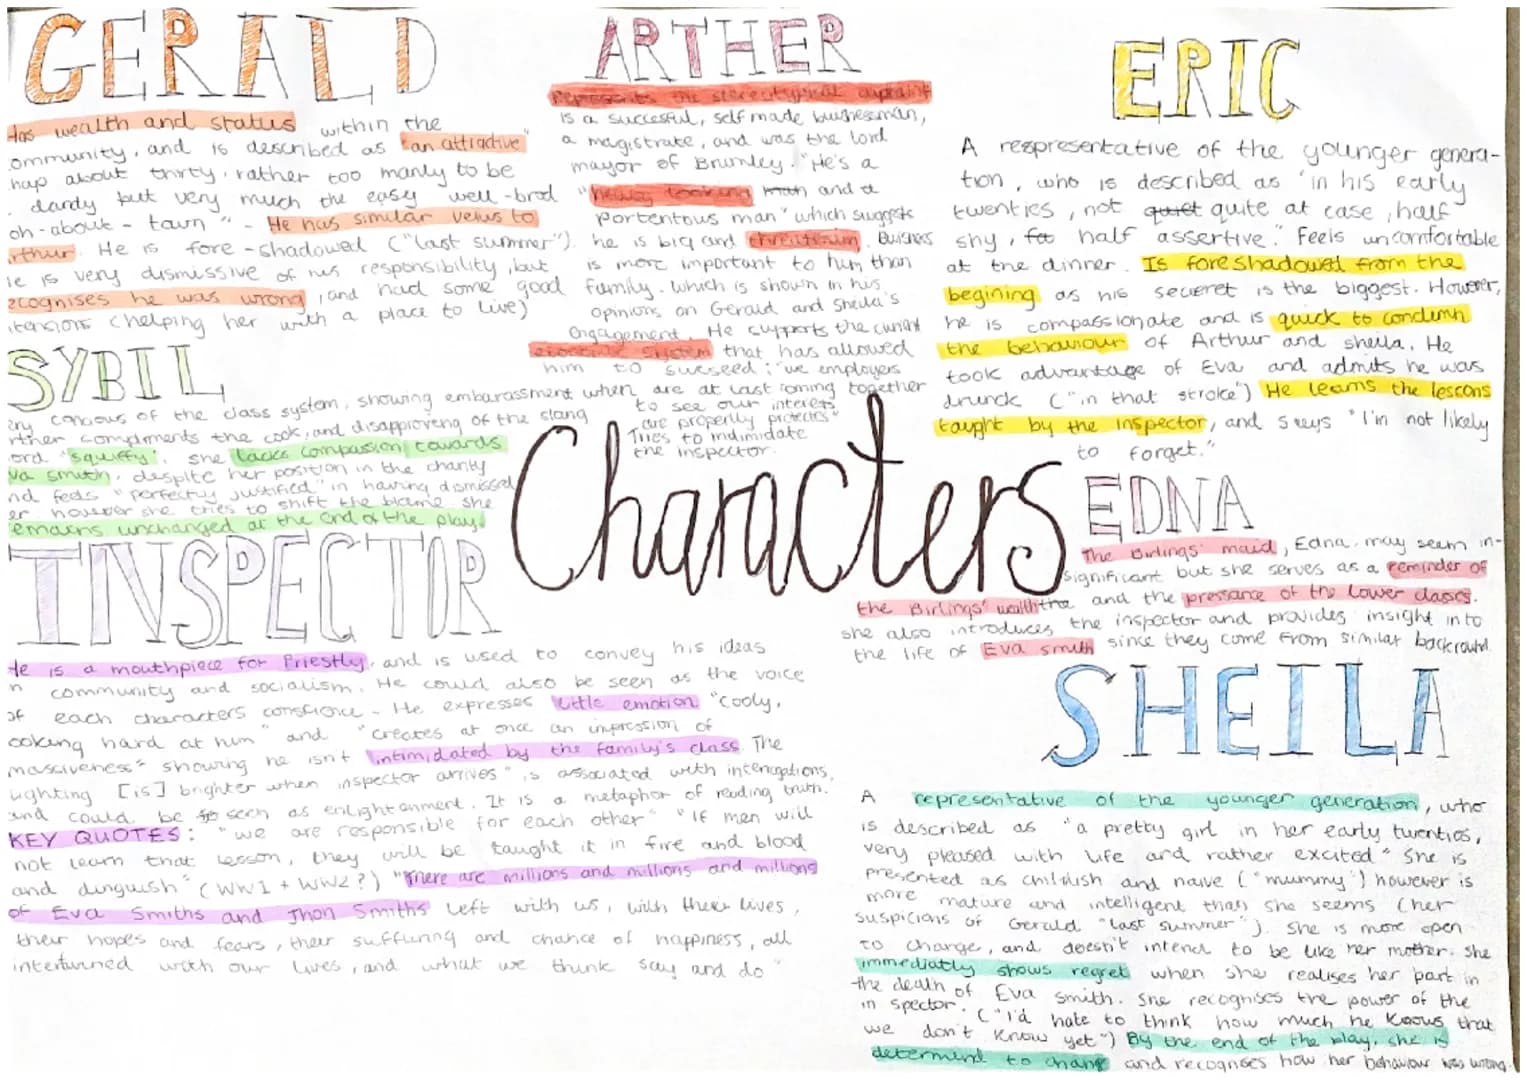 GERALD
Has wealth and status within the
ommunity, and is described as "an attractive"
hap about thirty, rather too manly to be
dandy but very much the easy well-bred
oh-about-town" - He has similar veiws to
rthur. He is fore-shadowed ("last summer").
e is very dismissive of his responsibility, but
ecognises he was wrong, and had some good
itensions (helping her with a place to live)
SYBIL
ery concous of the class system, showing embarassment when
rther compliments the cook, and disapproveng of the slang
ord "squiffy". She lacks compassion towards
va smith, despite her position in the charity
nd feels "perfectly justified" in having dismissed
er however she tries to shift the blame she
emains unchanged at the end of the play.
INSPECTOR
He is a mouthpiece for Priestly, and is used to convey his ideas
n community and socialism. He could also be seen as the voice
of each characters conscience - He expresses little emotion "cooly,
ooking hard at him" and "creates at once an impression of
massiveness" showing he isn't intimidated by the family's class. The
lighting [is] brighter when inspector arrives" is associated with interrogations,
and could be seen as enlightenment. It is a metaphor of reading truth.
KEY QUOTES: "we are responsible for each other" "If men will
not learn that lesson, they will be taught it in fire and blood
and anguish" (WW1 + WW2?) "There are millions and millions and millions
of Eva Smiths and Jhon Smiths left with us, with their lives,
their hopes and fears, their suffuring and chance of happiness, all
intertwined with our lives, and what we think say and do"
ARTHER
represents the stereotypical capitalist
is a succesful, self made buisnessman,
a magistrate, and was the lord
mayor of Brumley. "He's a
"heavy looking man and a
portentous man" which suggests
he is big and threatening. Buisness
is more important to him than
family. which is shown in his
opinions on Gerald and Sheila's
engagement. He supports the current
economic system that has allowed
him to succeed: "we employers
are at last coming together
to see our interests
are properly protected"
Tries to indimidate
the inspector.
Characters
ERIC
A respresentative of the younger genera-
tion, who is described as "in his early
twenties, not quiet quite at ease, half
shy, half assertive." Feels uncomfortable
at the dinner. Is foreshadowed from the
begining as his secret is the biggest. However,
he is compassionate and is quick to condemn
the behaviour of Arthur and sheila. He
took advantage of Eva and admits he was
drunck ("in that stroke") He learns the lessons
taught by the inspector, and says "I'm not likely
to forget."
EDNA
The Birlings' maid, Edna, may seem in-
significant but she serves as a reminder of
the Birlings' wealth and the pressance of the lower classes.
she also introduces the inspector and provides insight into
the life of Eva smith since they come from similar backround.
SHEILA
A representative of the younger generation, who
is described as "a pretty girl in her early twenties,
very pleased with life and rather excited" She is
presented as childish and naive ("mummy") however is
more mature and intelligent than she seems (her
suspicions of Gerald "last summer"). She is more open
to change, and doesn't intend to be like her mother. She
immediatly shows regret when she realises her part in
the death of Eva Smith. She recognises the power of the
inspector. ("I'd hate to think how much he knows that
we don't know yet") By the end of the play, she is
determind to change and recognises how her behaviour was wrong.